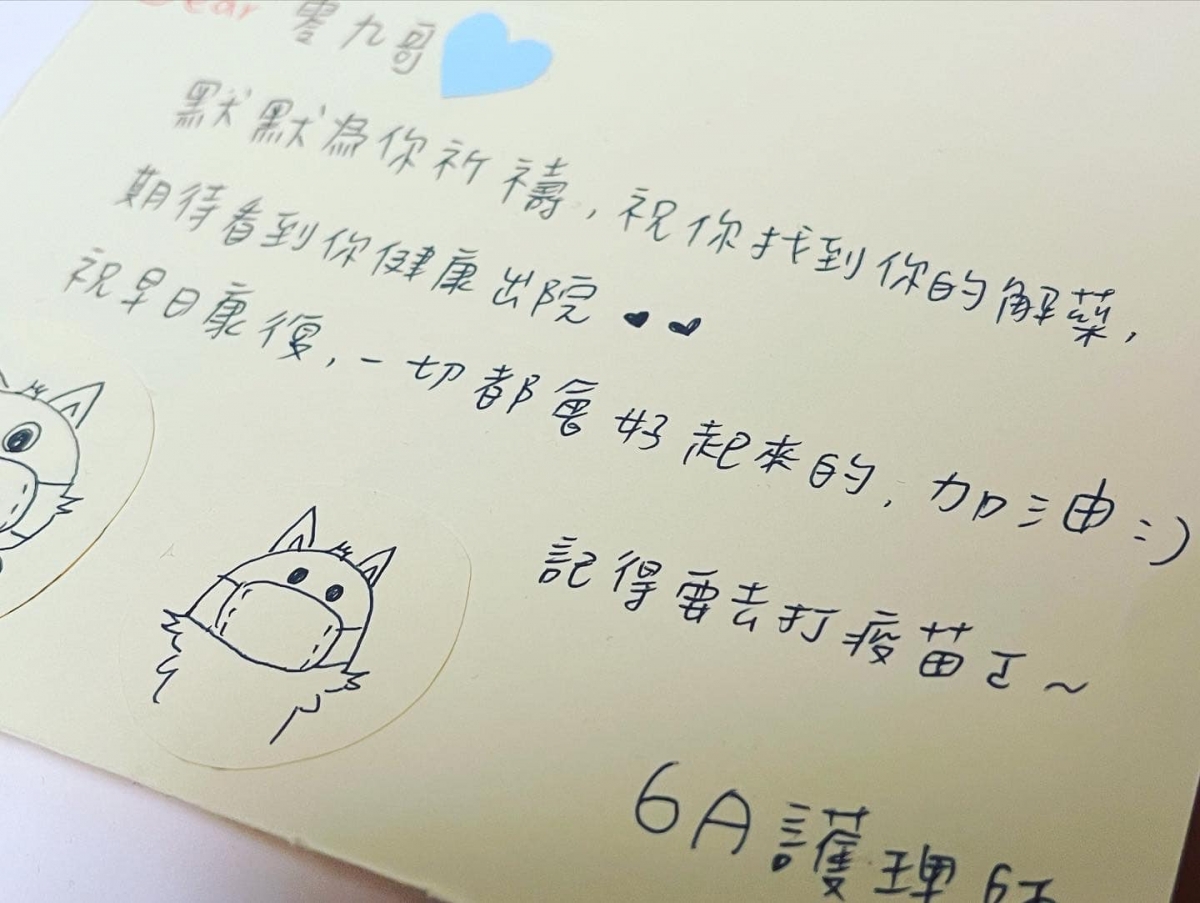 Dear 零九哥
默默為你祈禱，祝你找到你的解藥，
期待看到你健康出院♥♥
祝早日康復，一切都會好起來的，加油:)
記得要去打疫苗ㄛ~
6A護理師